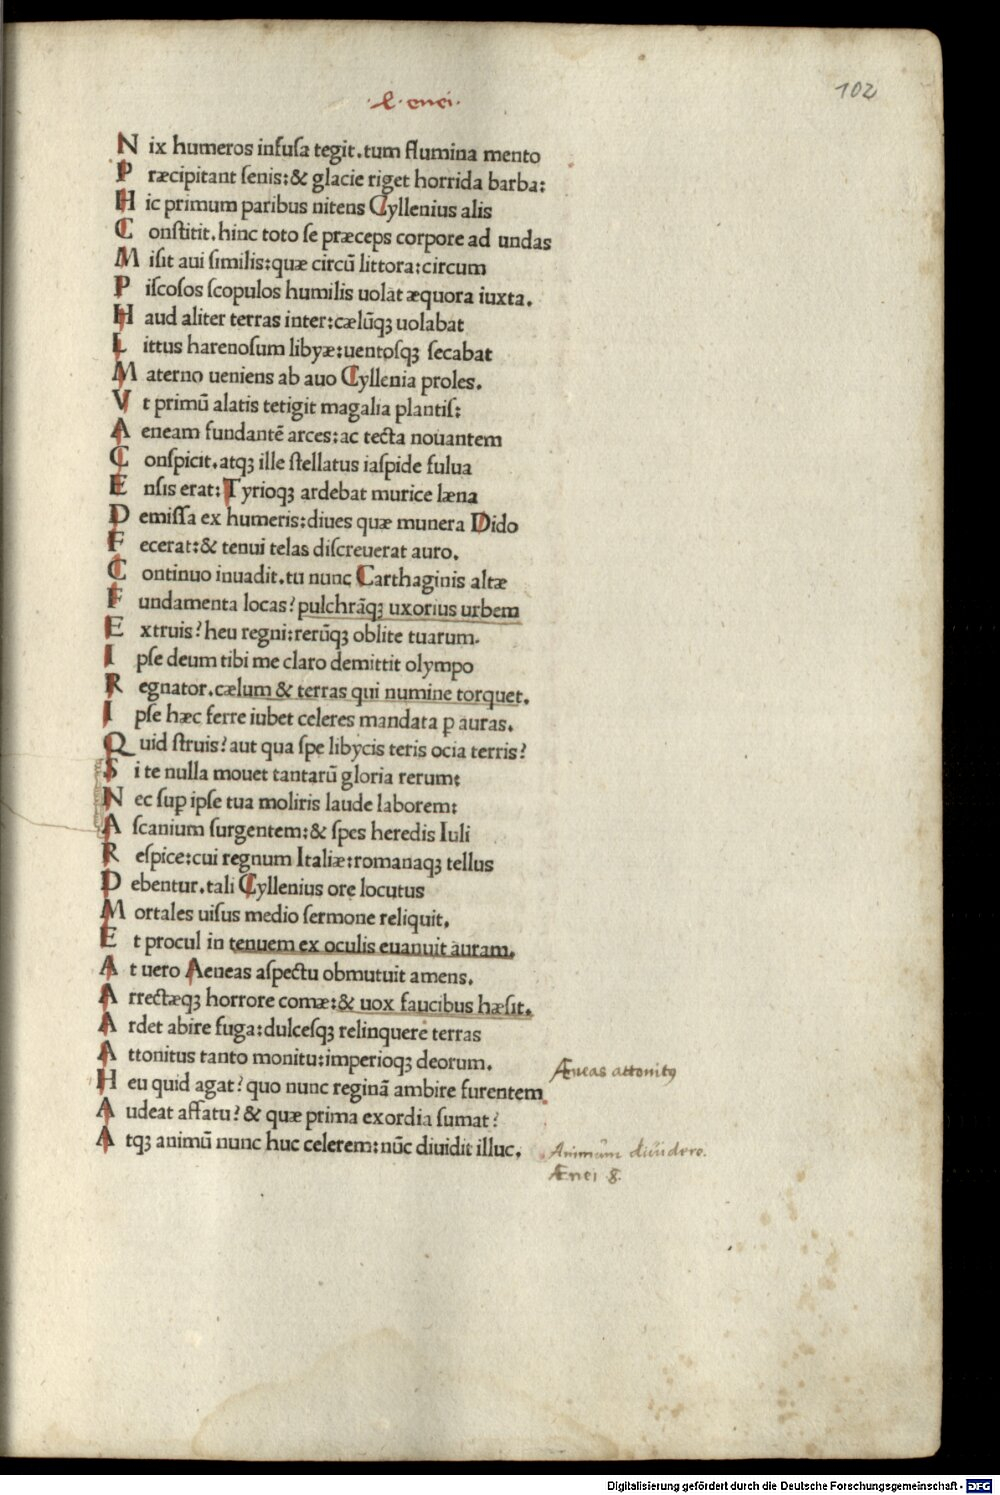 102
.l. enei.
N ix humeros infusa tegit. tum flumina mento
P ræcipitant senis: & glacie riget horrida barba:
H ic primum paribus nitens Cyllenius alis
C onstitit. hinc toto se præceps corpore ad undas
M isit aui similis: quæ circū littora: circum
P iscosos scopulos humilis uolat æquora iuxta.
H aud aliter terras inter: cælūqꝫ uolabat
L ittus harenosum libyæ: uentosqꝫ secabat
M aterno ueniens ab auo Cyllenia proles.
V t primū alatis tetigit magalia plantis:
A eneam fundantē arces: ac tecta nouantem
C onspicit. atqꝫ ille stellatus iaspide fulua
E nsis erat: Tyrioqꝫ ardebat murice læna
D emissa ex humeris: diues quæ munera Dido
F ecerat: & tenui telas discreuerat auro.
C ontinuo inuadit. tu nunc Carthaginis altæ
F undamenta locas? pulchrāqꝫ uxorius urbem
E xtruis? heu regni: rerūqꝫ oblite tuarum.
I pse deum tibi me claro demittit olympo
R egnator. cælum & terras qui numine torquet.
I pse hæc ferre iubet celeres mandata ꝑ auras.
Q uid struis? aut qua spe libycis teris ocia terris?
S i te nulla mouet tantarū gloria rerum:
N ec suꝑ ipse tua moliris laude laborem:
A scanium surgentem: & spes heredis Iuli
R espice: cui regnum Italiæ: romanaqꝫ tellus
D ebentur. tali Cyllenius ore locutus
M ortales uisus medio sermone reliquit.
E t procul in tenuem ex oculis euanuit auram.
A t uero Aeneas aspectu obmutuit amens.
A rrectæqꝫ horrore comæ: & uox faucibus hæsit.
A rdet abire fuga: dulcesqꝫ relinquere terras
A ttonitus tanto monitu: imperioqꝫ deorum.
Æneas attonitꝰ
H eu quid agat? quo nunc reginā ambire furentem
A udeat affatu? & quæ prima exordia sumat?
A tqꝫ animū nunc huc celerem: nūc diuidit illuc.
Animum diuidere.
Ænei 8.
Digitalisierung gefördert durch die Deutsche Forschungsgemeinschaft - DFG